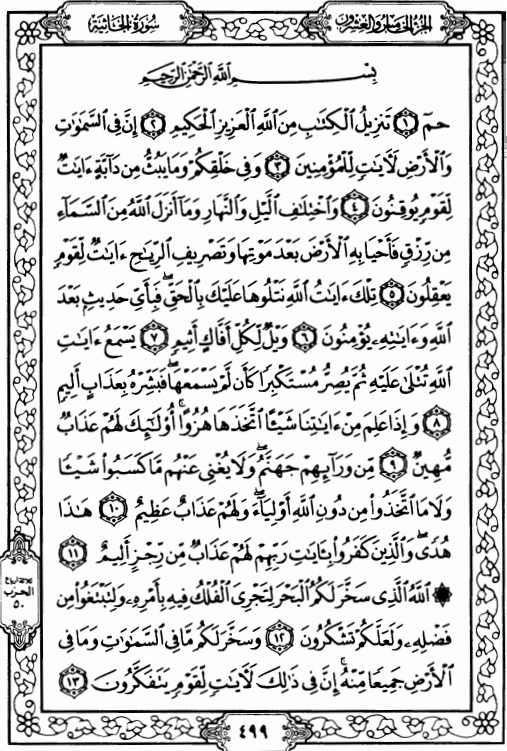 الجزء الخامس والعشرون
سورة الجاثية
بِسْمِ اللَّهِ الرَّحْمَٰنِ الرَّحِيمِ
حمٓ ١ تَنزِيلُ ٱلْكِتَٰبِ مِنَ ٱللَّهِ ٱلْعَزِيزِ ٱلْحَكِيمِ ٢ إِنَّ فِى ٱلسَّمَٰوَٰتِ
وَٱلْأَرْضِ لَـَٔايَٰتٍ لِّلْمُؤْمِنِينَ ٣ وَفِى خَلْقِكُمْ وَمَا يَبُثُّ مِن دَآبَّةٍ ءَايَٰتٌ
لِّقَوْمٍ يُوقِنُونَ ٤ وَٱخْتِلَٰفِ ٱلَّيْلِ وَٱلنَّهَارِ وَمَآ أَنزَلَ ٱللَّهُ مِنَ ٱلسَّمَآءِ
مِن رِّزْقٍ فَأَحْيَا بِهِ ٱلْأَرْضَ بَعْدَ مَوْتِهَا وَتَصْرِيفِ ٱلرِّيَٰحِ ءَايَٰتٌ لِّقَوْمٍ
يَعْقِلُونَ ٥ تِلْكَ ءَايَٰتُ ٱللَّهِ نَتْلُوهَا عَلَيْكَ بِٱلْحَقِّ ۖ فَبِأَىِّ حَدِيثٍۭ بَعْدَ
ٱللَّهِ وَءَايَٰتِهِۦ يُؤْمِنُونَ ٦ وَيْلٌ لِّكُلِّ أَفَّاكٍ أَثِيمٍ ٧ يَسْمَعُ ءَايَٰتِ
ٱللَّهِ تُتْلَىٰ عَلَيْهِ ثُمَّ يُصِرُّ مُسْتَكْبِرًا كَأَن لَّمْ يَسْمَعْهَا ۖ فَبَشِّرْهُ بِعَذَابٍ أَلِيمٍ
٨ وَإِذَا عَلِمَ مِنْ ءَايَٰتِنَا شَيْـًٔا ٱتَّخَذَهَا هُزُوًا ۚ أُو۟لَٰٓئِكَ لَهُمْ عَذَابٌ
مُّهِينٌ ٩ مِّن وَرَآئِهِمْ جَهَنَّمُ ۖ وَلَا يُغْنِى عَنْهُم مَّا كَسَبُوا۟ شَيْـًٔا
وَلَا مَا ٱتَّخَذُوا۟ مِن دُونِ ٱللَّهِ أَوْلِيَآءَ ۖ وَلَهُمْ عَذَابٌ عَظِيمٌ ١٠ هَٰذَا
هُدًى ۖ وَٱلَّذِينَ كَفَرُوا۟ بِـَٔايَٰتِ رَبِّهِمْ لَهُمْ عَذَابٌ مِّن رِّجْزٍ أَلِيمٌ ١١
۞ ٱللَّهُ ٱلَّذِى سَخَّرَ لَكُمُ ٱلْبَحْرَ لِتَجْرِىَ ٱلْفُلْكُ فِيهِ بِأَمْرِهِۦ وَلِتَبْتَغُوا۟ مِن
فَضْلِهِۦ وَلَعَلَّكُمْ تَشْكُرُونَ ١٢ وَسَخَّرَ لَكُم مَّا فِى ٱلسَّمَٰوَٰتِ وَمَا فِى
ٱلْأَرْضِ جَمِيعًا مِّنْهُ ۚ إِنَّ فِى ذَٰلِكَ لَـَٔايَٰتٍ لِّقَوْمٍ يَتَفَكَّرُونَ ١٣
ثلاثة أرباع
الحزب
٥٠
٤٩٩